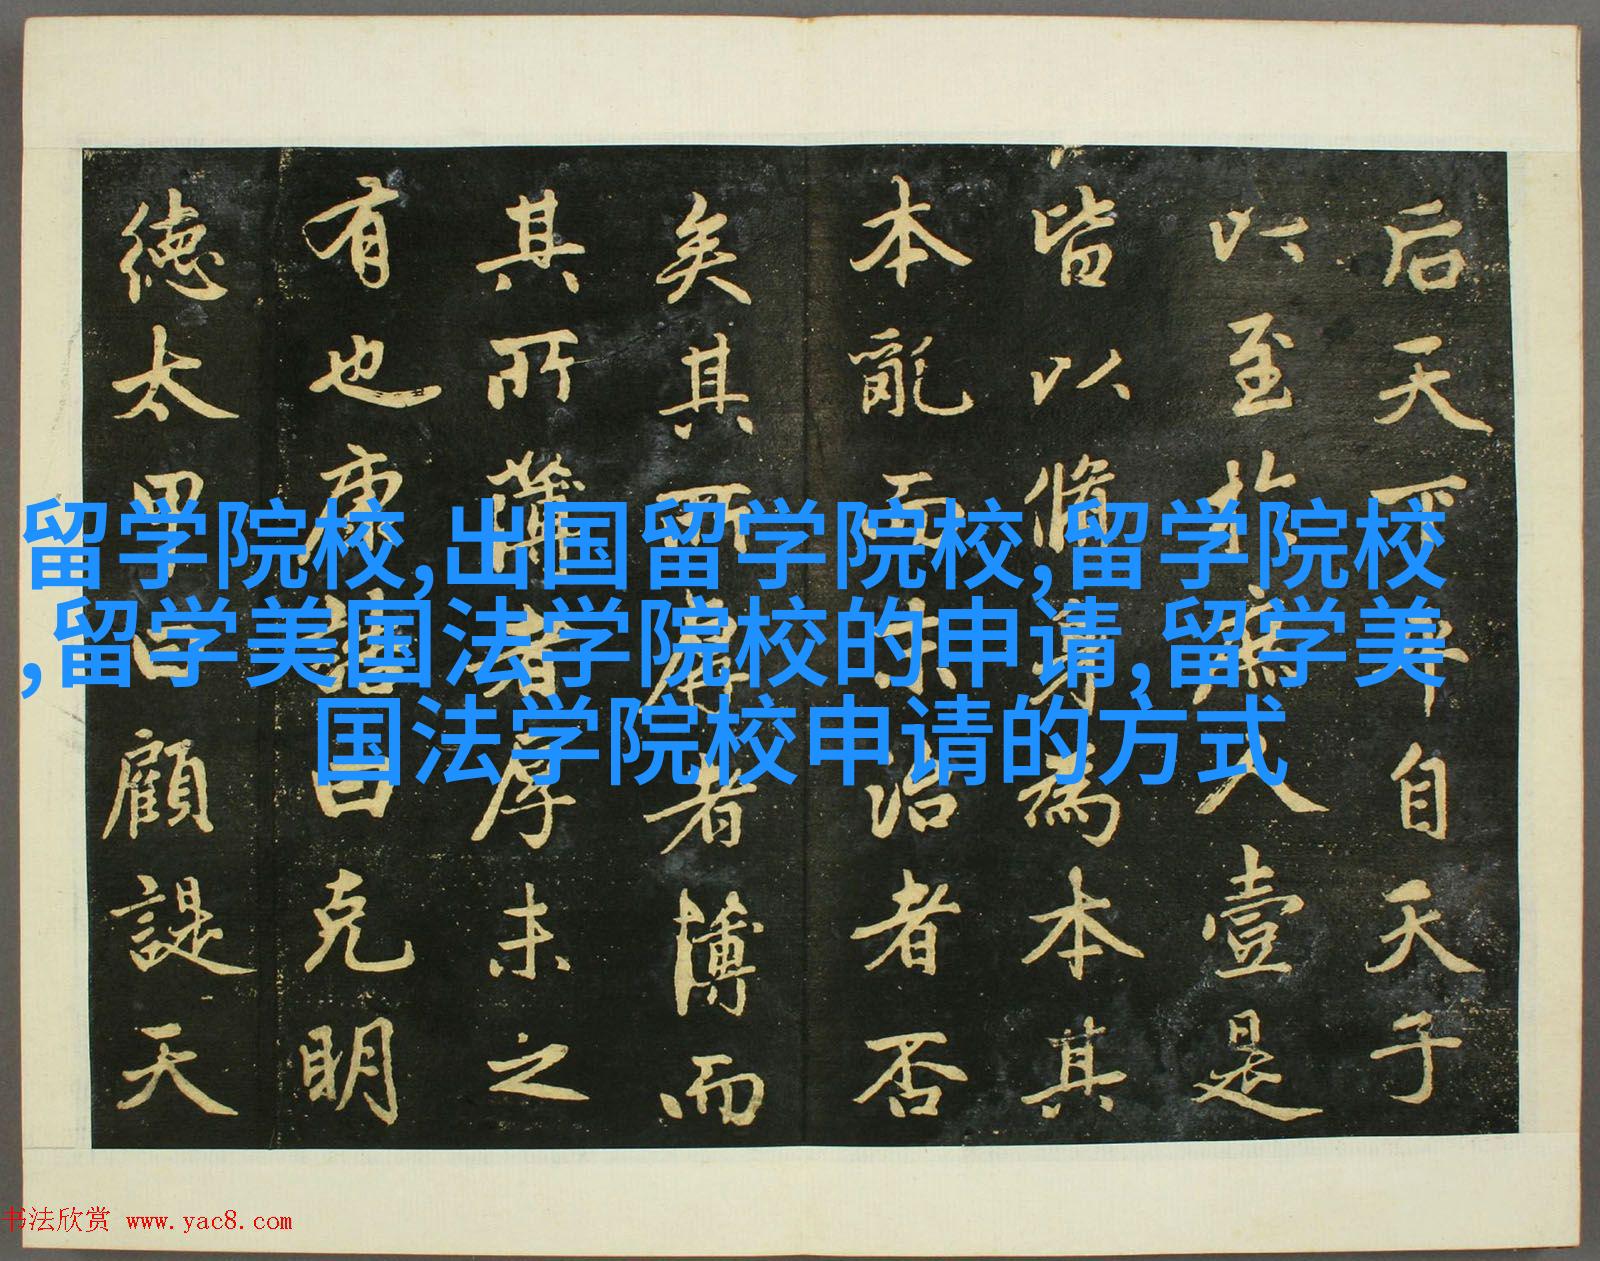 后天下平自天子
以至於庶人壹是
皆以脩身為本其
本亂而末治者否
矣其所厚者薄而
其所薄者厚未之
有也康誥曰克明
德太甲曰顧諟天
留学院校,出国留学院校,留学院校
,留学美国法学院校的申请,留学美
国法学院校申请的方式
书法欣赏 www.yac8.com